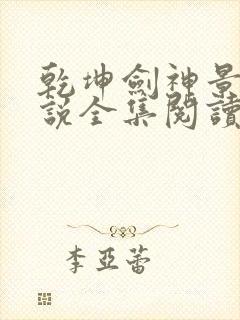 乾坤劍神景
說全集閱讀
李亞蕾